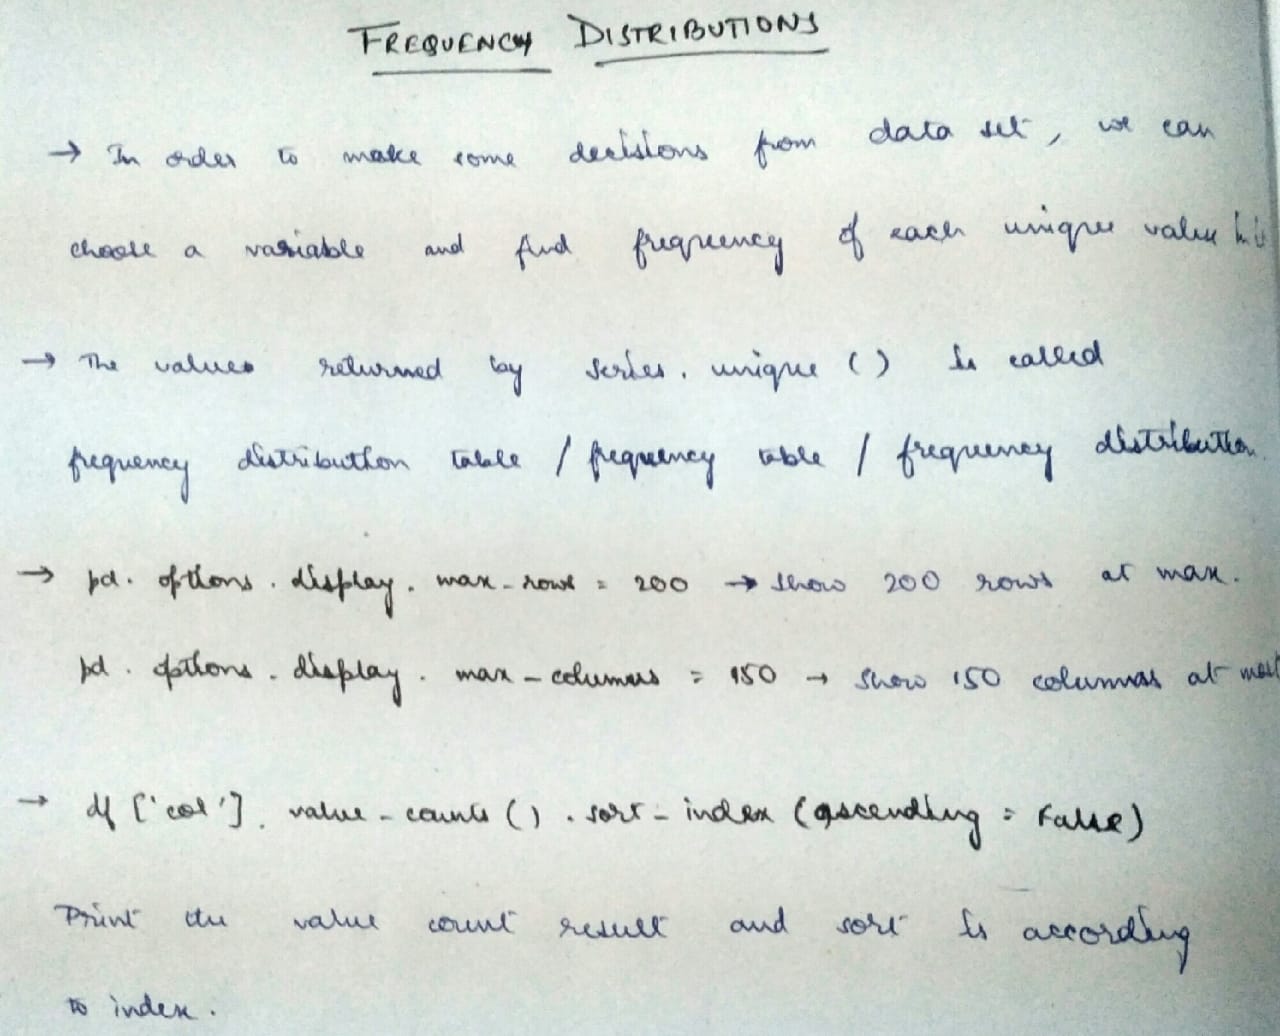 FREQUENCY DISTRIBUTIONS
→ In order to make some decisions from data set, we can
choose a variable and find frequency of each unique value in it
→ The values returned by series.unique () is called
frequency distribution table / frequency table / frequency distribution.
→ pd.options.display.max_rows = 200 → show 200 rows at max.
pd.options.display.max_columns = 150 → show 150 columns at most
→ df['col'].value_counts().sort_index(ascending = False)
Print the value count result and sort is according
to index.